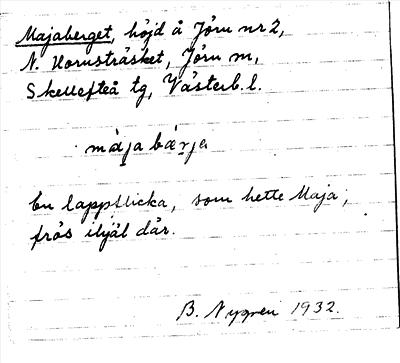 Majaberget, höjd å Jörn nr 2,
N. Hornsträsket, Jörn sn,
Skellefteå tg, Västerb. l.
màja bærja
En lappflicka, som hette Maja,
frös ihjäl där.
B. Nygren 1932.